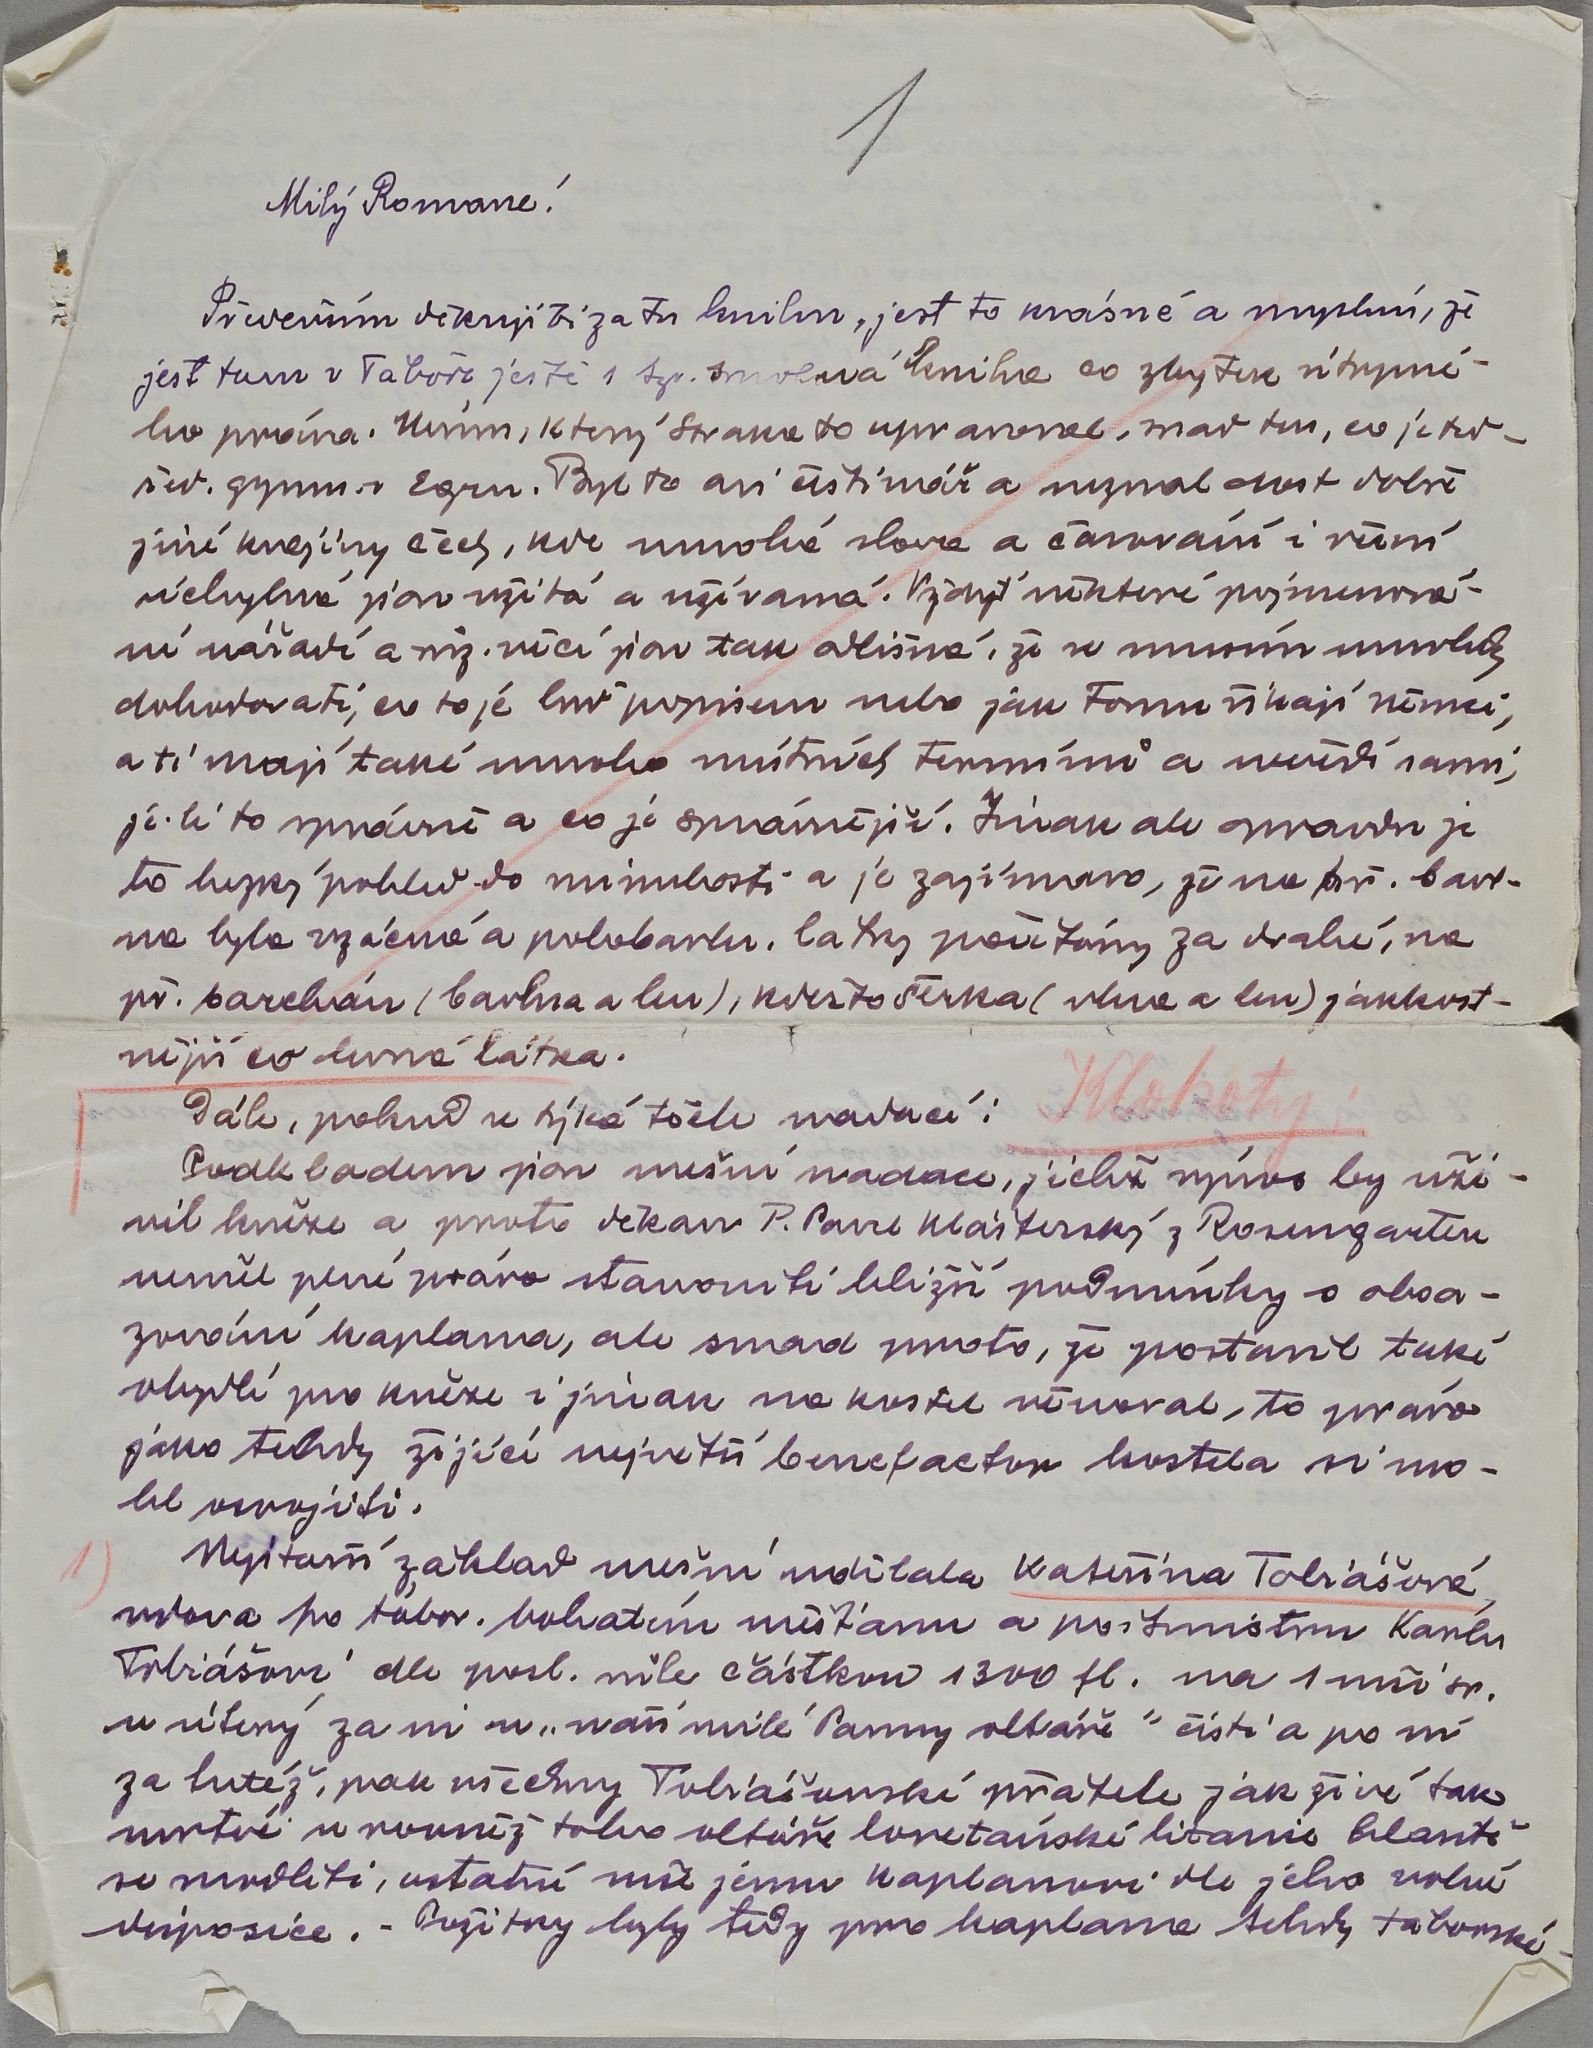 1
Milý Romane!
Převelmi děkuji Ti za tu knihu, jest to krásné a
jest tam v Táboře ještě 1 tzv. smolná kniha co zbytek útrpné-
ho práva. který Straka to upravoval, snad ten, co je
řed. gymn. v Egru. Byl to asi češtinář a neznal dost dobře
jiné krajiny Čech, kde mnohé slova a časování i rčení
úchylná jsou užitá a užívaná. Vždyť některé pojmenová-
ní nářadí a růz. věcí jsou tak odlišná, že se musím mnohdy
dohadovati, co to je buď popisem nebo jak tomu říkají Němci,
a ti mají také mnoho místních termínů a nevědí sami,
je-li to správné a co je správnější. Jinak ale opravdu je
to hezký pohled do minulosti a je zajímavo, že na př. bavl-
na byla vzácná a polobavln. látky počítány za drahé, na
př. barchán (bavlna a len), kdežto šerka (vlna a len) jakkost-
nější co levná látka.
Dále, pokud se týká těchle nadací: Klokoty:
Podkladem jsou mešní nadace, jichž by uži-
vil kněze a proto děkan P. Pavel Klášterský z Rosengarten
neměl plné právo stanoviti bližší podmínky o obsa-
zování kaplana, ale snad proto, že postavil také
obydlí pro kněze i jinak na kostel věnoval, to právo
jako tehdy žijící největší benefactor kostela si mo-
hl osvojiti.
1) Nejstarší základ mešní udělala Kateřina Tobiášová,
vdova po tábor. bohatém měšťanu a poštmistru Karlu
Tobiášovi dle posl. vůle částkou 1300 fl. na 1 mši sv.
v úterý za ni u "naší milé Panny oltáře" čísti a po ní
za tutéž, pak všechny Tobiášovské přátele jak živé tak
mrtvé u rovněž toho oltáře loretánské litanie hlasitě
se modliti, ostatní mše jemu kaplanovi dle jeho volné
disposice. - Požitky byly tedy pro kaplana tehdy táborské-